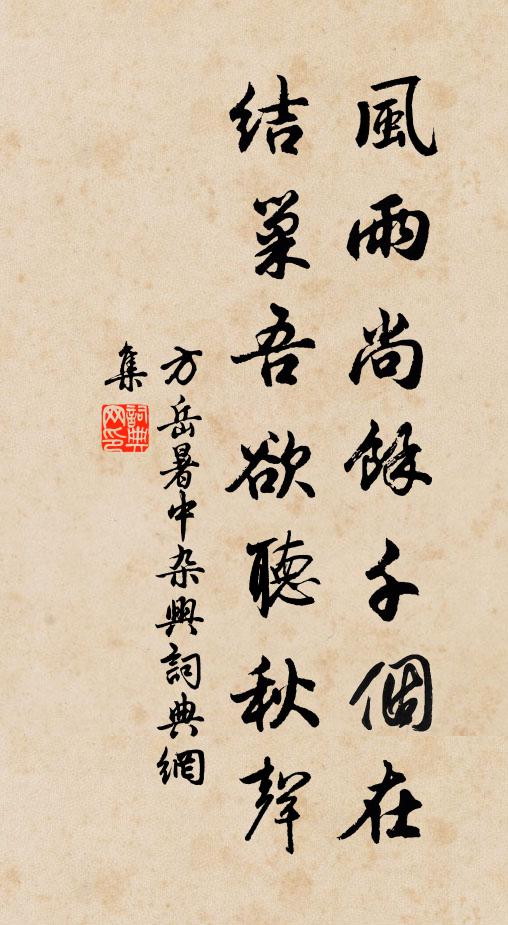 風雨尚餘千個在
結巢吾欲聽秋聲
方岳暑中杂興詞典網
集
詞典
网印